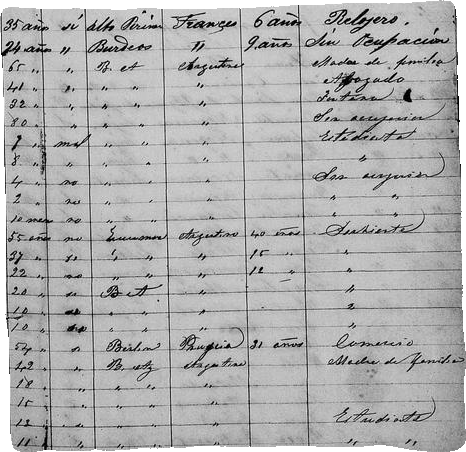 35 años si Alto Pirineo Frances 6 años Relojero.
24 años " Burdeos " 9 años Sin Ocupación
65 " " B. A. Argentina Madre de familia
41 " " " " " Abogado
32 " " " " "
80 " " " " " Sin ocupacion
7 " mal " " " Estudiante
8 " " " " "
4 " no " " " Sin ocupacion
2 " no " " " " "
10 mes no " " " " "
55 años no Argentino 40 años Sirvienta
37 " " " " 15 " "
22 " no " " 12 " "
20 " si " "
10 " " " "
10 " no " "
54 " si Berlin Prusia 31 años Comercio
42 " " Argentina Madre de familia
18 " " " " "
15 " " " "
12 " " " " Estudiante
11 " " " " " "